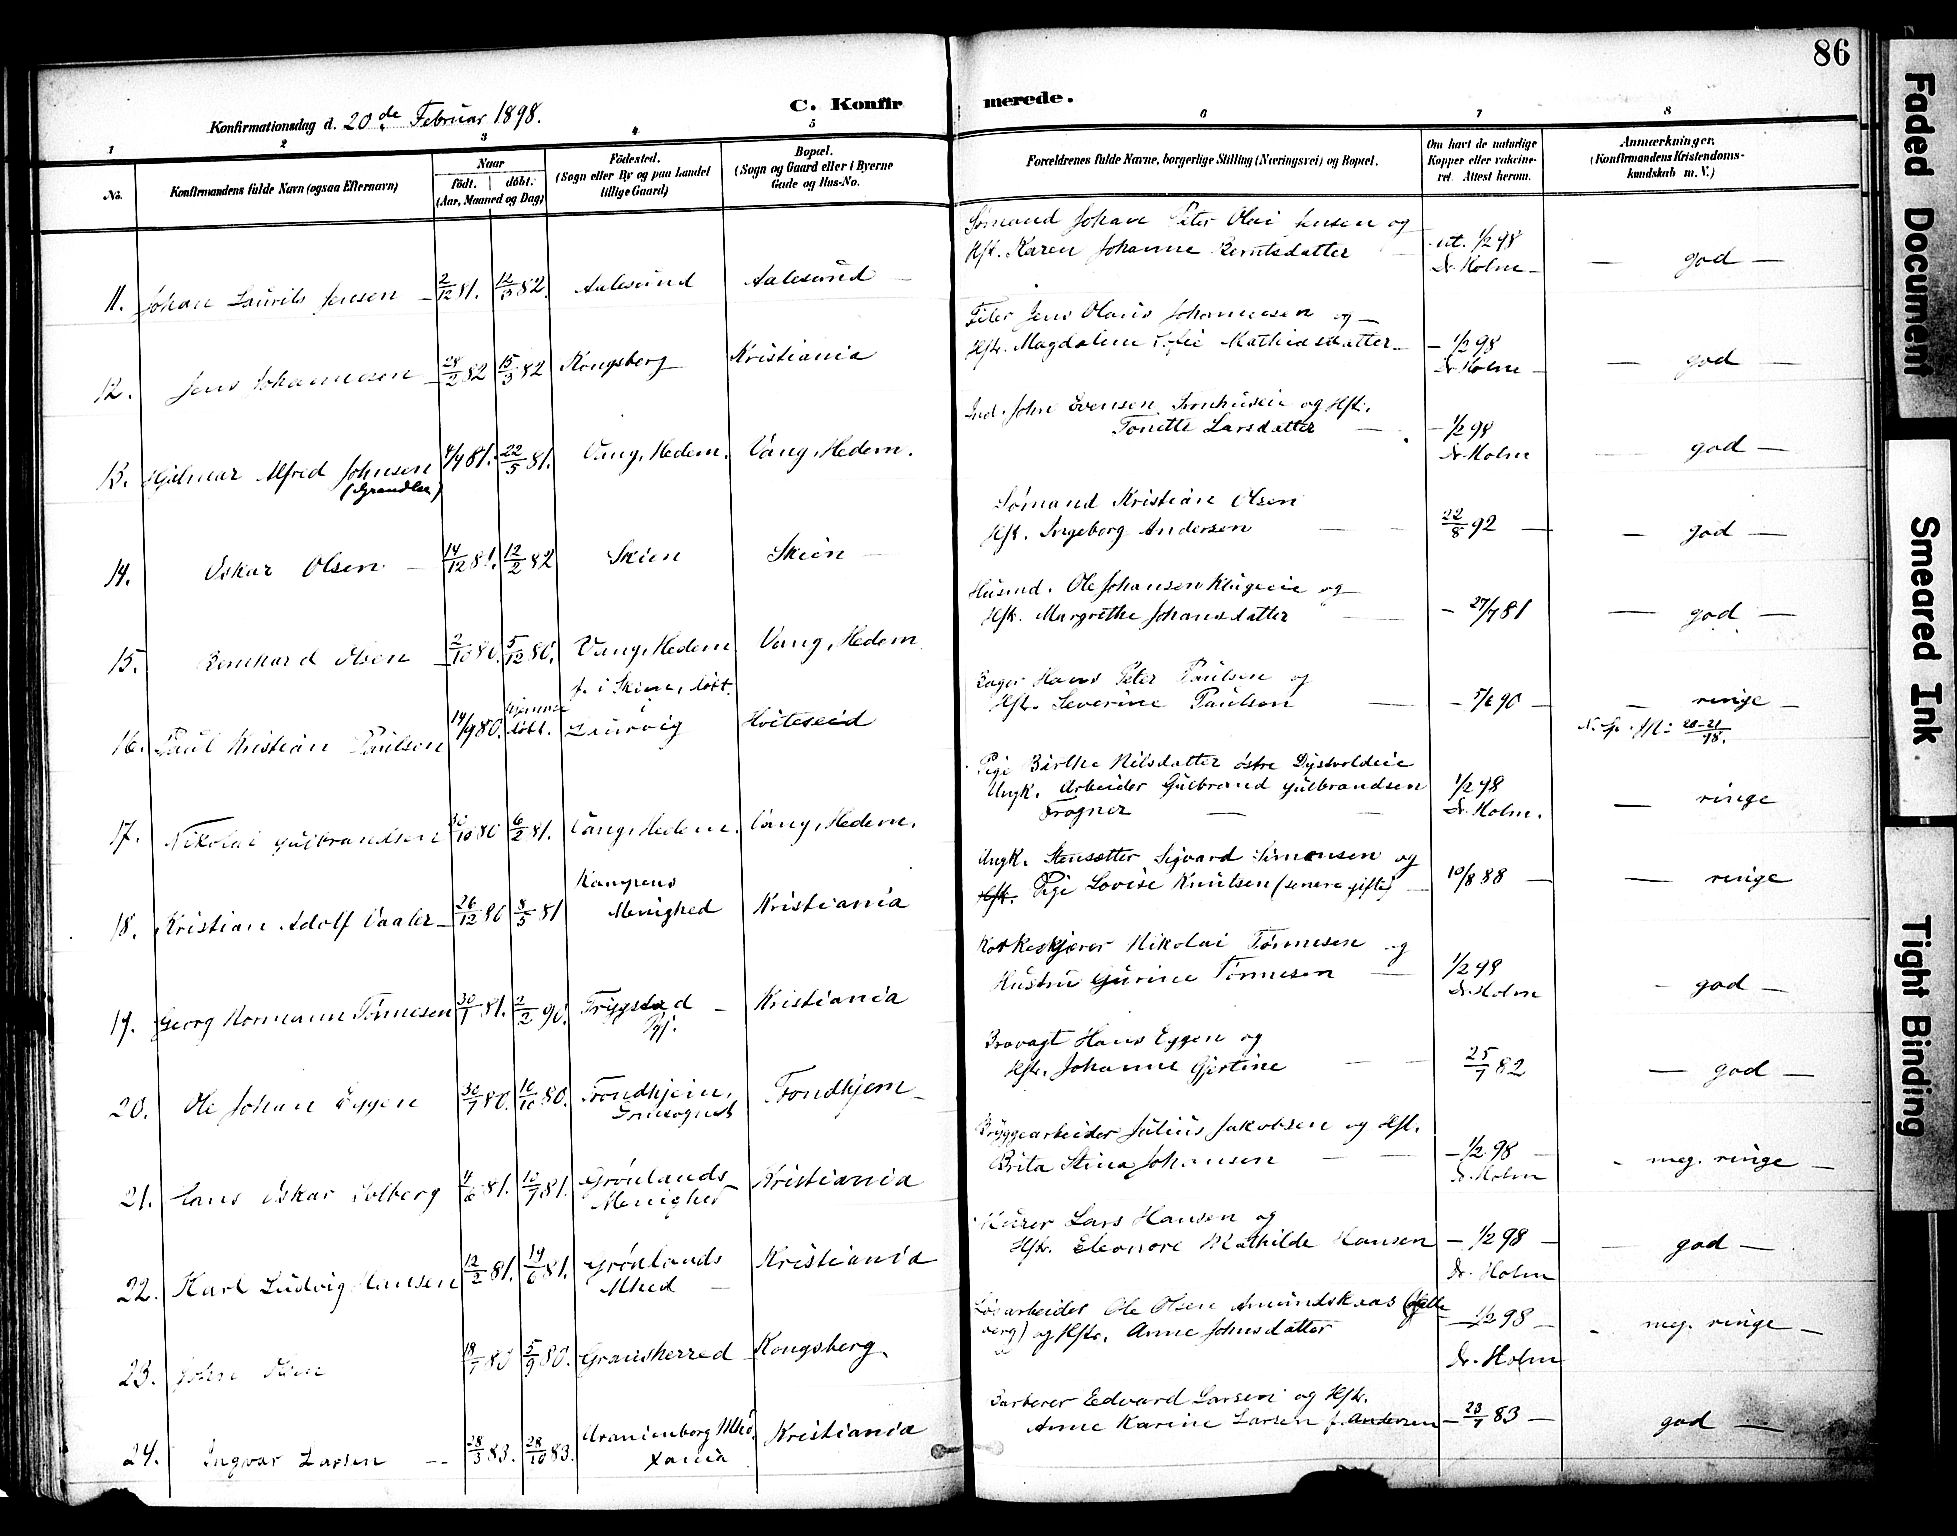 86
C. Konfirmerede.
Konfirmationsdag d. 20de Februar 1898.
1 2 3 4 5 6 7 8
No.
Konfirmandens fulde Navn (ogsaa Efternavn)
Naar
födt. döbt.
(Aar, Maaned og Dag)
Födested.
(Sogn eller By og paa Landet
tillige Gaard)
Bopæl.
(Sogn og Gaard eller i Byerne
Gade og Hus-No.
Forældrenes fulde Navne, borgerlige Stilling (Næringsvei) og Bopæl.
Om havt de naturlige
Kopper eller vakcine-
ret. Attest herom.
Anmærkninger.
(Konfirmandens Kristendoms-
kundskab m. V.)
11. Johan Laurits Jensen 2/12 81. 12/3 82. Aalesund Aalesund
Sømand Johan Peter Olai Jensen og
Hst. Karen Johanne Berntsdatter
1/2 98
Dr. Holm
god
12. Jens Johannesen 24/2 82 15/3 82 Kongsberg Kristiania
Jens Olaus Johannesen og
Hst. Magdalene Sofie Mathiasdatter
1/2 98
Dr. Holm
god
13. Hjalmar Alfred Johnsen 81. 22/5 81. Vang, Hedem. Vang, Hedem.
Ind. John Evensen og Hst.
Tonette Larsdatter
1/2 98
Dr. Holm
god
14. Oskar Olsen 14/12 81. 12/2 82 Skien Skien
Sømand Kristian Olsen
Hst. Ingeborg Andersen
22/8 92
god
15. Bernhard Olsen 2/10 80. 5/12 80. Vang, Hedem Vang, Hedem
Husmd. Ole Johansen og
Hst. Margrethe Johansdatter
27/7 81
god
16. Paul Kristian Paulsen 14/9 80. hjemme
döbt.
f. i Skien, döbt
i
Laurvig Hviteseid
Bager Hans Peter Paulsen og
Hst. Severine Paulsen
90
ringe
17. Nikolai Gulbrandsen 80 6/2 81. Vang, Hedem. Vang, Hedem.
Pige Birthe Nilsdatter østre Dystvoldeie
Ungk. Arbeider Gulbrand Gulbrandsen
Frogner
1/2 98
Dr. Holm.
ringe
18. Kristian Adolf Vaaler 26/12 80 8/5 81 Kampens
Menighed Kristiania
Ungk. Sigvard Simonsen og
Hst. Pige Lovise Knutsen (senere gifte)
10/8 88
ringe
19. Georg Normann Tønnesen 30/1 81. 2/2 90. Trygstad
Pgj. Kristiania
Nikolai Tønnesen og
Hustru Gurine Tønnesen
1/2 98
Dr. Holm
god
20. Ole Johan Eggen 30/7 80. 10/10 80. Trondhjem, Trondhjem
Brovagt Hans Eggen og
Hst. Johanne Gjertine
25/7 82
god
21. Hans Oskar Solberg 4/6 81. 12/7 81. Grönlands
Menighed Kristiania
Bryggearbeider Julius Jakobsen og Hst.
Brita Stina Johansen
1/2 98
Dr. Holm
meg. ringe
22. Karl Ludvig Hansen 12/2 81. 19/6 81. Grönlands
Mhed Kristiania
Murer Lars Hansen og
Hst. Eleonore Mathilde Hansen
1/2 98
Dr. Holm
god
23. John Olsen 18/7 80 5/9 80. Gransherred Kongsberg.
Ole Olsen Amundskaas
og Hst. Anne Johnsdatter
1/2 98
Dr. Holm
meg. ringe
24. Ingvar Larsen 28/3 83. 28/10 83. Uranienborg Mhd.
Xania Kristiania
Barberer Edvard Larsen og Hst.
Anne Karine Larsen f. Andersen
83
god
Faded Document
Smeared Ink
Tight Binding